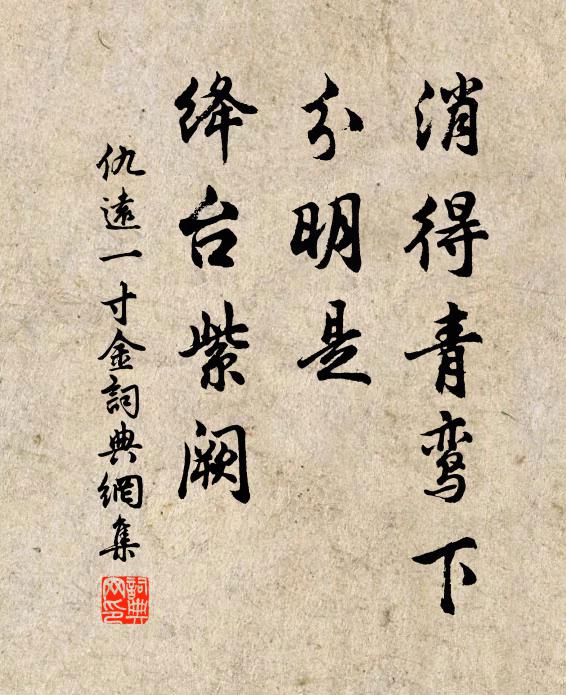 消得青鸾下
分明是
绛台紫阙
仇遠一寸金詞典網集
詞典网印